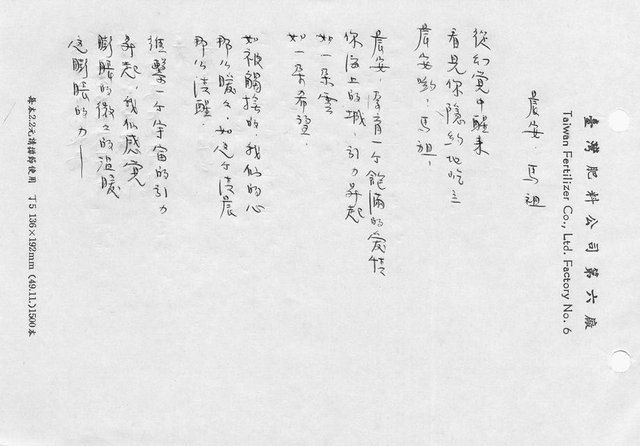 臺灣肥料公司第六廠
Taiwan Fertilizer Co., Ltd. Factory No. 6
晨安‧馬祖
從幻覺中醒來
看見你隱約地屹立
晨安喲,馬祖,
晨安,孕育一个飽滿的愛情
你海上的城 引力昇起
如一朵雲
如一朵希望
如被觸撞的,我们的心
那么暖々,如這个清晨
那么清醒.
從擊一个宇宙的引力
昇起,我们感覺
膨脹的微々的溫暖
這膨脹的力—
每本2.2元請撙節使用 T5 136×192mm (49.11.)1500本